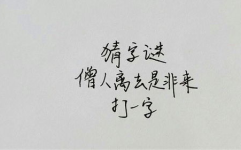 猜字谜
僧人离去是非来
打一字